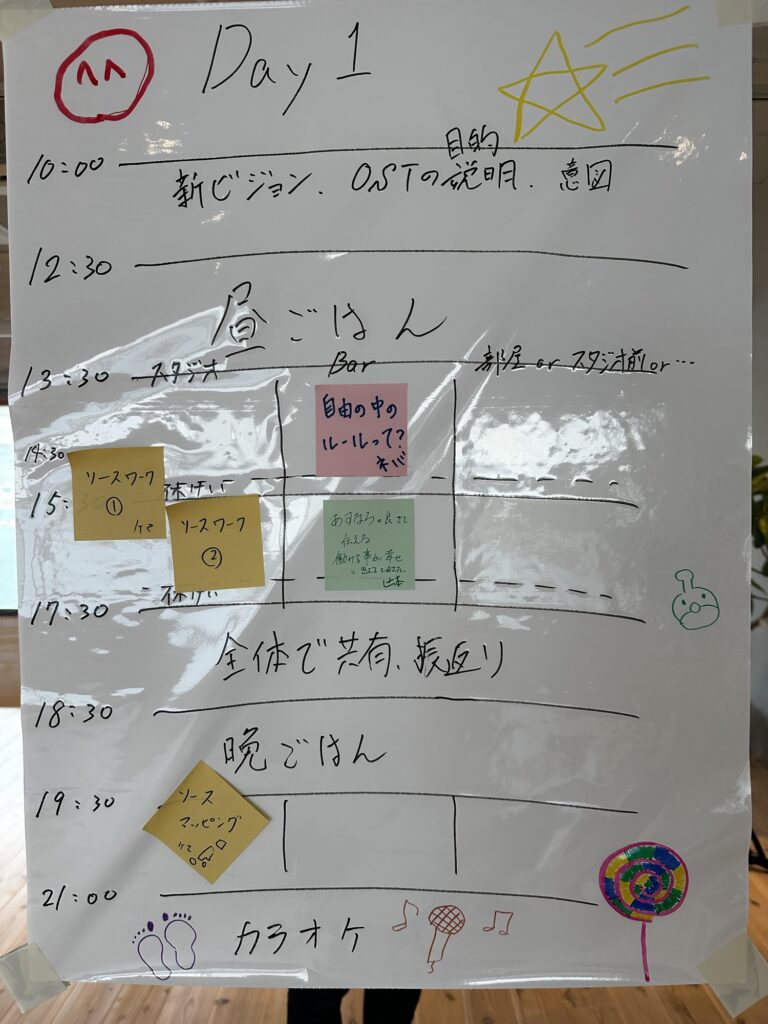 Day 1
10:00
目的
新ビジョン、OSTの説明、意図
12:30
昼ごはん
13:30 スタジオ Bar 部屋 or スタジオ前 or …
自由の中の
ルールって?
ネバ
14:30
ソースワーク
①
ケマ
15:
休けい
ソースワーク
②
あすなろの良さを
伝える
働ける事が幸せ
休けい
17:30
全体で共有、振返り
18:30
晩ごはん
19:30
ソース
マッピング
ケマ
21:00
カラオケ